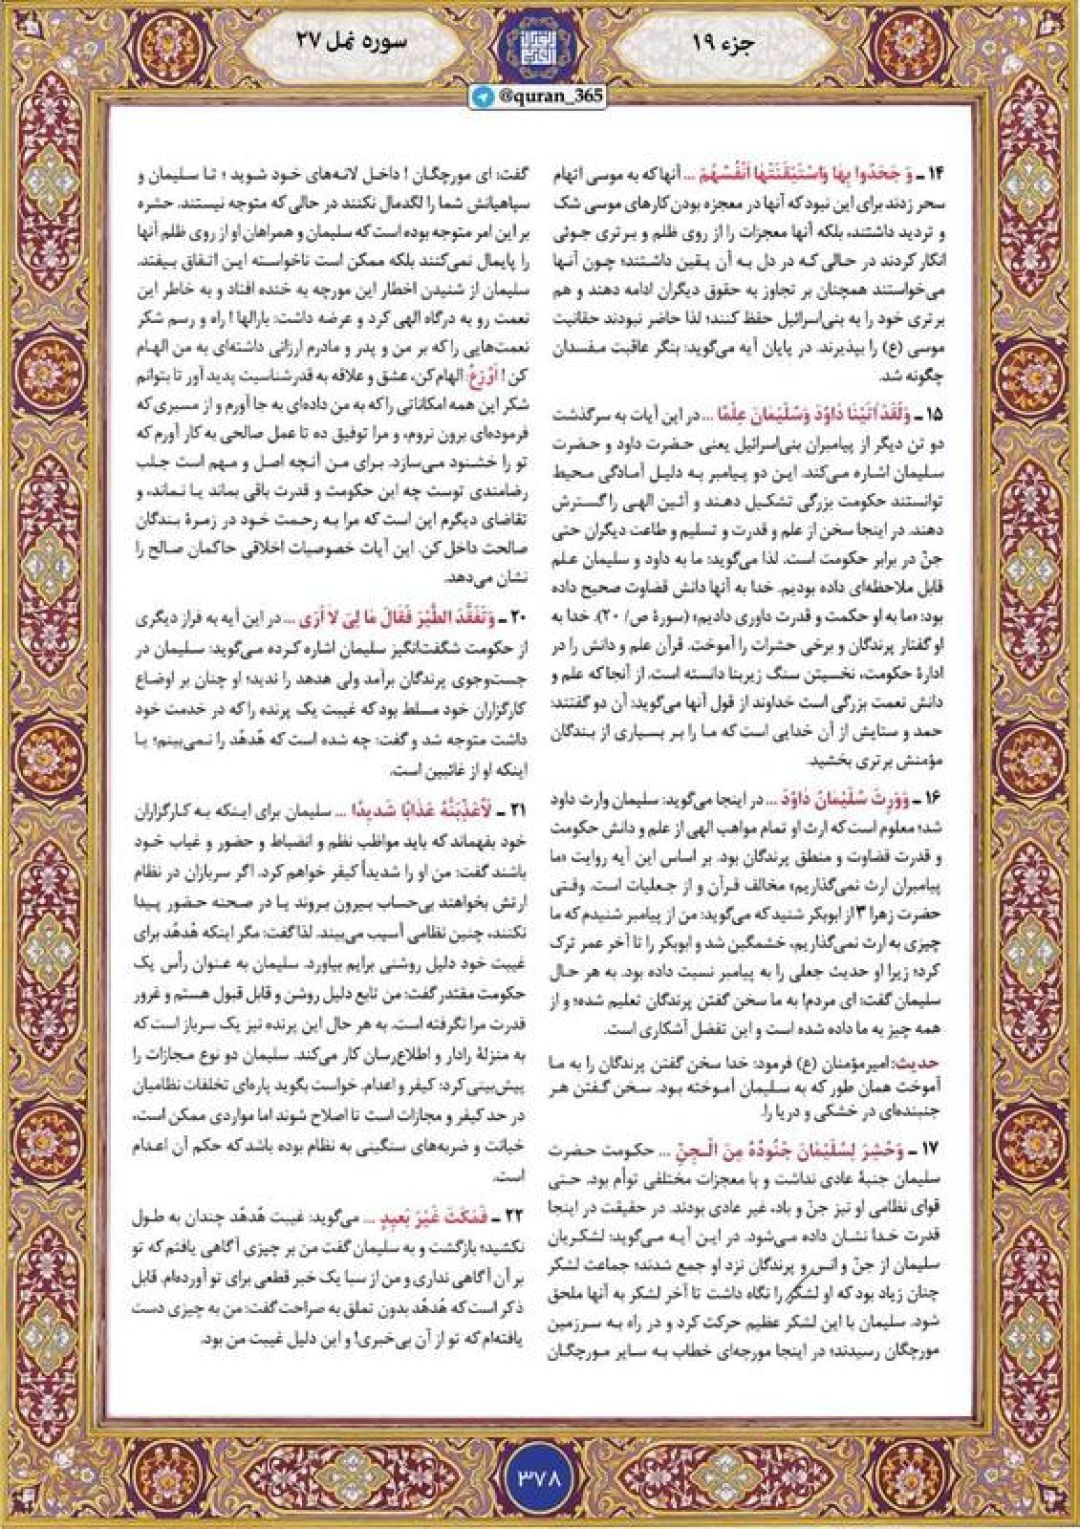 جزء ۱۹
سوره نمل ۲۷
@quran_365
۱۴ ـ وَ جَحَدُوا بِهَا وَاسْتَيْقَنَتْهَا أَنْفُسُهُمْ ... آنها که به موسی اتهام
سحر زدند برای این نبود که آنها در معجزه بودن کارهای موسی شک
و تردید داشتند، بلکه آنها معجزات را از روی ظلم و برتری جوئی
انکار کردند در حالی که در دل به آن یقین داشتند؛ چون آنها
می‌خواستند همچنان بر تجاوز به حقوق دیگران ادامه دهند و هم
برتری خود را به بنی‌اسرائیل حفظ کنند؛ لذا حاضر نبودند حقانیت
موسی (ع) را بپذیرند. در پایان آیه می‌گوید: بنگر عاقبت مفسدان
چگونه شد.
۱۵ ـ وَلَقَدْ آتَيْنَا دَاوُدَ وَسُلَيْمَانَ عِلْمًا ... در این آیات به سرگذشت
دو تن دیگر از پیامبران بنی‌اسرائیل یعنی حضرت داود و حضرت
سلیمان اشاره می‌کند. این دو پیامبر به دلیل آمادگی محیط
توانستند حکومت بزرگی تشکیل دهند و آئین الهی را گسترش
دهند. در اینجا سخن از علم و قدرت و تسلیم و طاعت دیگران حتی
جنّ در برابر حکومت است. لذا می‌گوید: ما به داود و سلیمان علم
قابل ملاحظه‌ای داده بودیم. خدا به آنها دانش قضاوت صحیح داده
بود: «ما به او حکمت و قدرت داوری دادیم» (سورهٔ ص/ ۲۰). خدا به
او گفتار پرندگان و برخی حشرات را آموخت. قرآن علم و دانش را در
ادارهٔ حکومت، نخستین سنگ زیربنا دانسته است. از آنجا که علم و
دانش نعمت بزرگی است خداوند از قول آنها می‌گوید: آن دو گفتند:
حمد و ستایش از آن خدایی است که ما را بر بسیاری از بندگان
مؤمنش برتری بخشید.
۱۶ ـ وَوَرِثَ سُلَيْمَانُ دَاوُدَ ... در اینجا می‌گوید: سلیمان وارث داود
شد؛ معلوم است که ارث او تمام مواهب الهی از علم و دانش حکومت
و قدرت قضاوت و منطق پرندگان بود. بر اساس این آیه روایت «ما
پیامبران ارث نمی‌گذاریم» مخالف قرآن و از جعلیات است. وقتی
حضرت زهرا ۳ از ابوبکر شنید که می‌گوید: من از پیامبر شنیدم که ما
چیزی به ارث نمی‌گذاریم، خشمگین شد و ابوبکر را تا آخر عمر ترک
کرد؛ زیرا او حدیث جعلی را به پیامبر نسبت داده بود. به هر حال
سلیمان گفت: ای مردم! به ما سخن گفتن پرندگان تعلیم شده؛ و از
همه چیز به ما داده شده است و این تفضل آشکاری است.
حدیث: امیرمؤمنان (ع) فرمود: خدا سخن گفتن پرندگان را به ما
آموخت همان طور که به سلیمان آموخته بود. سخن گفتن هر
جنبنده‌ای در خشکی و دریا را.
۱۷ ـ وَحُشِرَ لِسُلَيْمَانَ جُنُودُهُ مِنَ الْجِنِّ ... حکومت حضرت
سلیمان جنبهٔ عادی نداشت و با معجزات مختلفی توأم بود. حتی
قوای نظامی او نیز جنّ و باد، غیر عادی بودند. در حقیقت در اینجا
قدرت خدا نشان داده می‌شود. در این آیه می‌گوید: لشکریان
سلیمان از جنّ و انس و پرندگان نزد او جمع شدند؛ جماعت لشکر
چنان زیاد بود که او لشگر را نگاه داشت تا آخر لشکر به آنها ملحق
شود. سلیمان با این لشکر عظیم حرکت کرد و در راه به سرزمین
مورچگان رسیدند؛ در اینجا مورچه‌ای خطاب به سایر مورچگان
گفت: ای مورچگان ! داخل لانه‌های خود شوید ؛ تا سلیمان و
سپاهیانش شما را لگدمال نکنند در حالی که متوجه نیستند. حشره
بر این امر متوجه بوده است که سلیمان و همراهان او از روی ظلم آنها
را پایمال نمی‌کنند بلکه ممکن است ناخواسته این اتفاق بیفتد.
سلیمان از شنیدن اخطار این مورچه به خنده افتاد و به خاطر این
نعمت رو به درگاه الهی کرد و عرضه داشت: بارالها ! راه و رسم شکر
نعمت‌هایی را که بر من و پدر و مادرم ارزانی داشته‌ای به من الهام
کن ! أَوْزِعْ: الهام کن، عشق و علاقه به قدرشناسیت پدید آور تا بتوانم
شکر این همه امکاناتی را که به من داده‌ای به جا آورم و از مسیری که
فرموده‌ای برون نروم، و مرا توفیق ده تا عمل صالحی به کار آورم که
تو را خشنود می‌سازد. برای من آنچه اصل و مهم است جلب
رضامندی توست چه این حکومت و قدرت باقی بماند یا نماند، و
تقاضای دیگرم این است که مرا به رحمت خود در زمرهٔ بندگان
صالحت داخل کن. این آیات خصوصیات اخلاقی حاکمان صالح را
نشان می‌دهد.
۲۰ ـ وَتَفَقَّدَ الطَّيْرَ فَقَالَ مَا لِيَ لَا أَرَى ... در این آیه به فراز دیگری
از حکومت شگفت‌انگیز سلیمان اشاره کرده می‌گوید: سلیمان در
جست‌وجوی پرندگان برآمد ولی هدهد را ندید؛ او چنان بر اوضاع
کارگزاران خود مسلط بود که غیبت یک پرنده را که در خدمت خود
داشت متوجه شد و گفت: چه شده است که هُدهُد را نمی‌بینم؛ یا
اینکه او از غائبین است.
۲۱ ـ لَأُعَذِّبَنَّهُ عَذَابًا شَدِيدًا ... سلیمان برای اینکه به کارگزاران
خود بفهماند که باید مواظب نظم و انضباط و حضور و غیاب خود
باشند گفت: من او را شدیداً کیفر خواهم کرد. اگر سربازان در نظام
ارتش بخواهند بی‌حساب بیرون بروند یا در صحنه حضور پیدا
نکنند، چنین نظامی آسیب می‌بیند. لذا گفت: مگر اینکه هُدهُد برای
غیبت خود دلیل روشنی برایم بیاورد. سلیمان به عنوان رأس یک
حکومت مقتدر گفت: من تابع دلیل روشن و قابل قبول هستم و غرور
قدرت مرا نگرفته است. به هر حال این پرنده نیز یک سرباز است که
به منزلهٔ رادار و اطلاع‌رسان کار می‌کند. سلیمان دو نوع مجازات را
پیش‌بینی کرد: کیفر و اعدام. خواست بگوید پاره‌ای تخلفات نظامیان
در حد کیفر و مجازات است تا اصلاح شوند اما مواردی ممکن است،
خیانت و ضربه‌های سنگینی به نظام بوده باشد که حکم آن اعدام
است.
۲۲ ـ فَمَكَثَ غَيْرَ بَعِيدٍ ... می‌گوید: غیبت هُدهُد چندان به طول
نکشید؛ بازگشت و به سلیمان گفت من بر چیزی آگاهی یافتم که تو
بر آن آگاهی نداری و من از سبا یک خبر قطعی برای تو آورده‌ام. قابل
ذکر است که هُدهُد بدون تملق به صراحت گفت: من به چیزی دست
یافته‌ام که تو از آن بی‌خبری! و این دلیل غیبت من بود.
۳۷۸